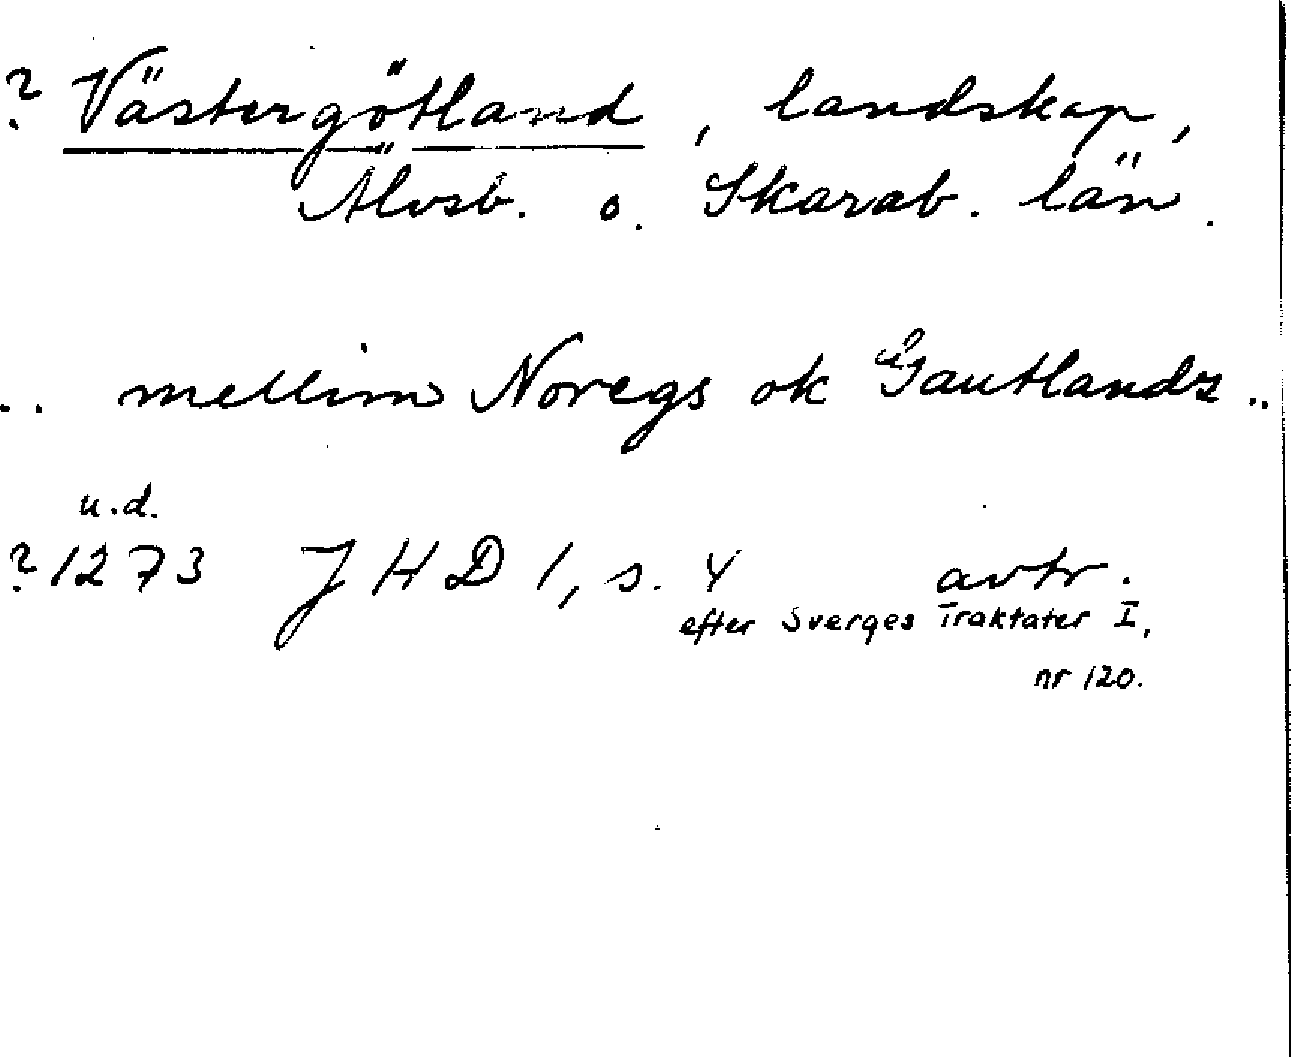 ? Västergötland, landskap,
Älvsb. o. Skarab. län.
.. mellim Noregs ok Gautlandz ..
u.d.
? 1273 JHD 1, s. 4 avtr.
efter Sverges Traktater I,
nr 120.